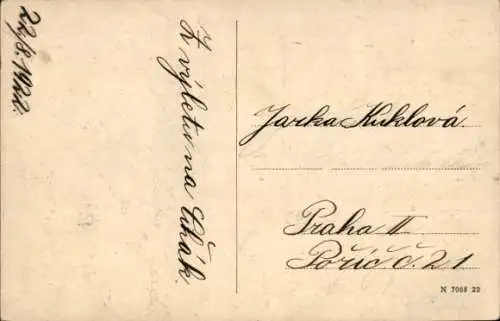 22/8. 1922.
Z výletu na Čihák.
Jarka Kuklová.
Praha II
Poříč č. 21
N 7068 22